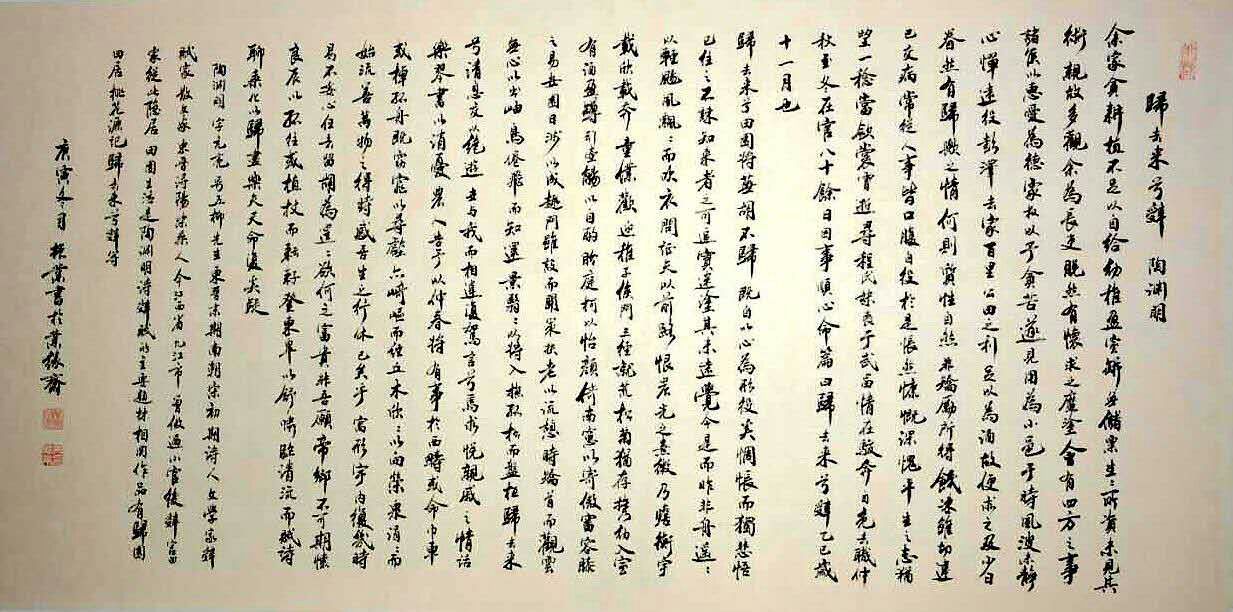 歸去來兮辭 陶淵明
余家貧耕植不足以自給幼稚盈室缾無儲粟生生所資未見其
術親故多勸余為長吏脫然有懷求之靡途會有四方之事
諸侯以惠愛為德家叔以予貧苦遂見用為小邑于時風波未靜
心憚遠役彭澤去家百里公田之利足以為酒故便求之及少日
眷然有歸歟之情何則質性自然非矯厲所得飢凍雖切違
已交病常從人事皆口腹自役於是悵然慷慨深愧平生之志猶
望一稔當斂裳宵逝尋程氏妹喪于武昌情在駿奔自免去職仲
秋至冬在官八十餘日因事順心命篇曰歸去來兮辭乙巳歲
十一月也
歸去來兮田園將蕪胡不歸 既自以心為形役奚惆悵而獨悲悟
已往之不諫知來者之可追實迷途其未遠覺今是而昨非舟遙遙
以輕颺風飄飄而吹衣問征夫以前路恨晨光之熹微乃瞻衡宇
載欣載奔 童僕歡迎稚子候門三徑就荒松菊猶存攜幼入室
有酒盈罇引壺觴以自酌眄庭柯以怡顏倚南窗以寄傲審容膝
之易安園日涉以成趣門雖設而關策扶老以流憩時矯首而觀雲
無心以出岫鳥倦飛而知還景翳翳以將入撫孤松而盤桓歸去來
兮請息交以絕遊 世與我而相違復駕言兮焉求悅親戚之情話
樂琴書以消憂農人告予以仲春將有事於西疇或命巾車
或棹孤舟既窈窕以尋壑亦崎嶇而經丘木欣欣以向榮泉涓涓而
始流善萬物之得時感吾生之行休已矣乎寓形宇內復幾時
曷不委心任去留胡為遑遑欲何之富貴非吾願帝鄉不可期懷
良辰以孤往或植杖而耘耔登東皋以舒嘯臨清流而賦詩
聊乘化以歸盡樂夫天命復奚疑
陶淵明字元亮号五柳先生東晉末期南朝宋初期詩人文學家辭
賦家散文家東晉潯陽柴桑人今江西省九江市曾做過小官後辭官回
家從此隱居田園生活是陶淵明詩辭賦的主要題材相關作品有歸園
田居桃花源記歸去來兮辭等
庚寅冬月 振業書於業硯齋